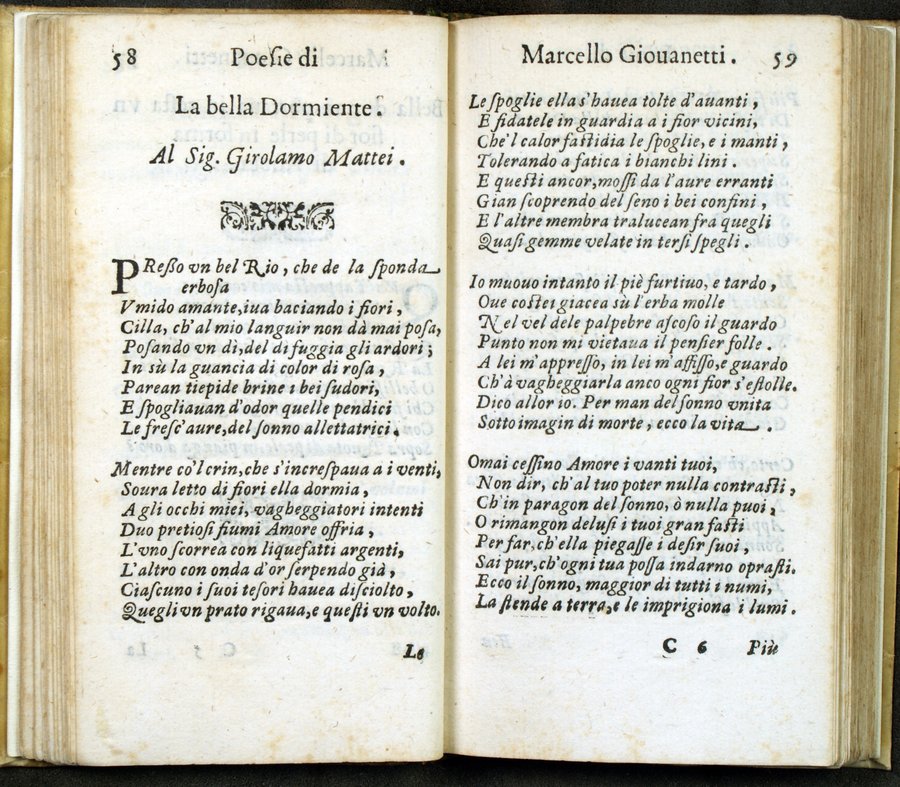 58 Poesie di
La bella Dormiente.
Al Sig. Girolamo Mattei.
PReßo vn bel Rio, che de la sponda
erbosa
Vmido amante,iua baciando i fiori,
Cilla, ch'al mio languir non dà mai posa,
Posando vn dì,del dì fuggia gli ardori;
In sù la guancia di color di rosa,
Parean tiepide brine i bei sudori,
E spogliauan d'odor quelle pendici
Le fresc'aure,del sonno allettatrici.
Mentre co'l crin,che s'increspaua a i venti,
Soura letto di fiori ella dormia,
A gli occhi miei, vagheggiatori intenti
Duo pretiosi fiumi Amore offria,
L'vno scorrea con liquefatti argenti,
L'altro con onda d'or serpendo già,
Ciascuno i suoi tesori hauea disciolto,
Quegli vn prato rigaua,e questi vn volto.
Le
Marcello Giouanetti. 59
Le spoglie ella s'hauea tolte d'auanti,
E fidatele in guardia a i fior vicini,
Che'l calor fastidia le spoglie, e i manti,
Tolerando a fatica i bianchi lini.
E questi ancor,mossi da l'aure erranti
Gian scoprendo del seno i bei confini,
E l'altre membra tralucean fra quegli
Quasi gemme velate in tersi spegli.
Io muouo intanto il piè furtiuo, e tardo,
Oue costei giacea sù l'erba molle
Nel vel dele palpebre ascoso il guardo
Punto non mi vietaua il pensier folle.
A lei m'appresso, in lei m'affisso,e guardo
Ch'à vagheggiarla anco ogni fior s'estolle.
Dico allor io. Per man del sonno vnita
Sotto imagin di morte, ecco la vita.
Omai cessino Amore i vanti tuoi,
Non dir, ch'al tuo poter nulla contrasti,
Ch'in paragon del sonno, ò nulla puoi,
O rimangon delusi i tuoi gran fasti
Per far,ch'ella piegasse i desir suoi,
Sai pur,ch'ogni tua possa indarno oprasti.
Ecco il sonno, maggior di tutti i numi,
La stende a terra,e le imprigiona i lumi.
C 6 Più